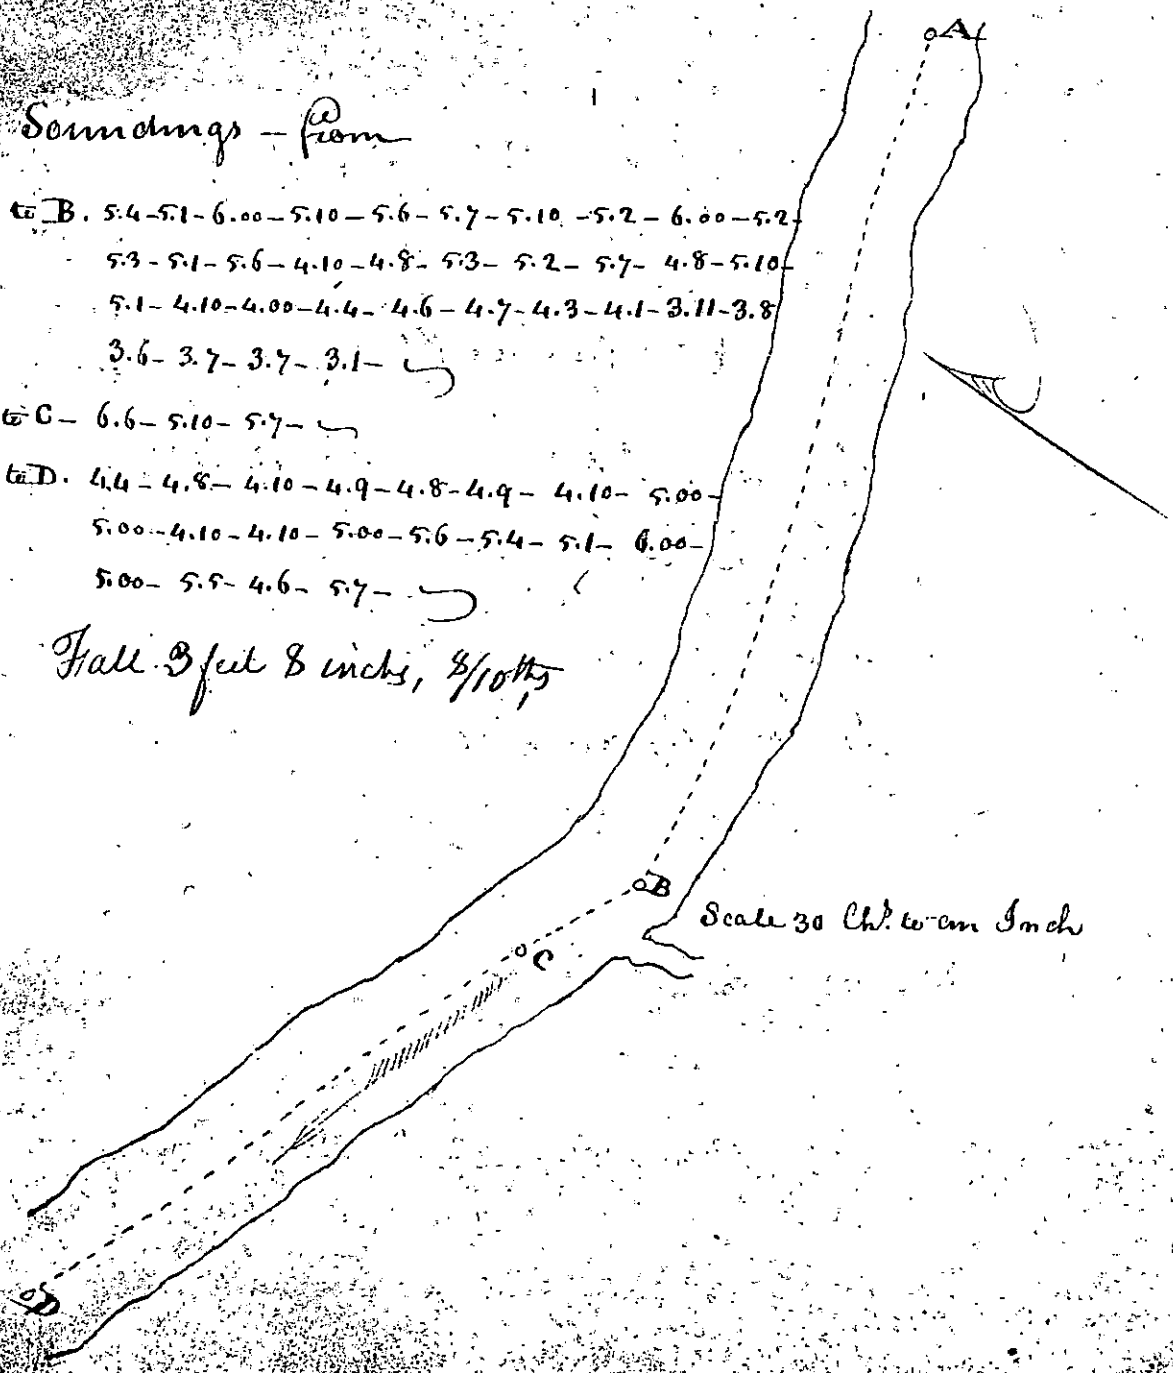 A
Soundings - from
to B. 5.4-5.1-6.00-5.10-5.6-5.7-5.10-5.2-6.00-5.2-
5.3-5.1-5.6-4.10-4.8-5.3-5.2-5.7-4.8-5.10-
5.1-4.10-4.00-4.4-4.6-4.7-4.3-4.1-3.11-3.8
3.6-3.7-3.7-3.1-
to C- 6.6-5.10-5.7-
to D. 4.4-4.8-4.10-4.9-4.8-4.9-4.10-5.00-
5.00-4.10-4.10-5.00-5.6-5.4-5.1-6.00-
5.00-5.5-4.6-5.7-
Fall 3 feet 8 inches, 8/10ths
B
Scale 30 Chs. to an Inch
C
D